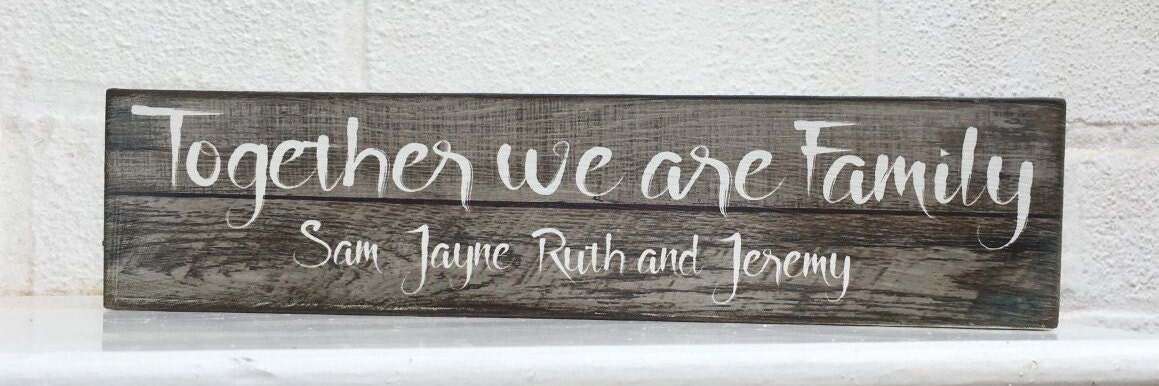 Together we are Family
Sam Jayne Ruth and Jeremy